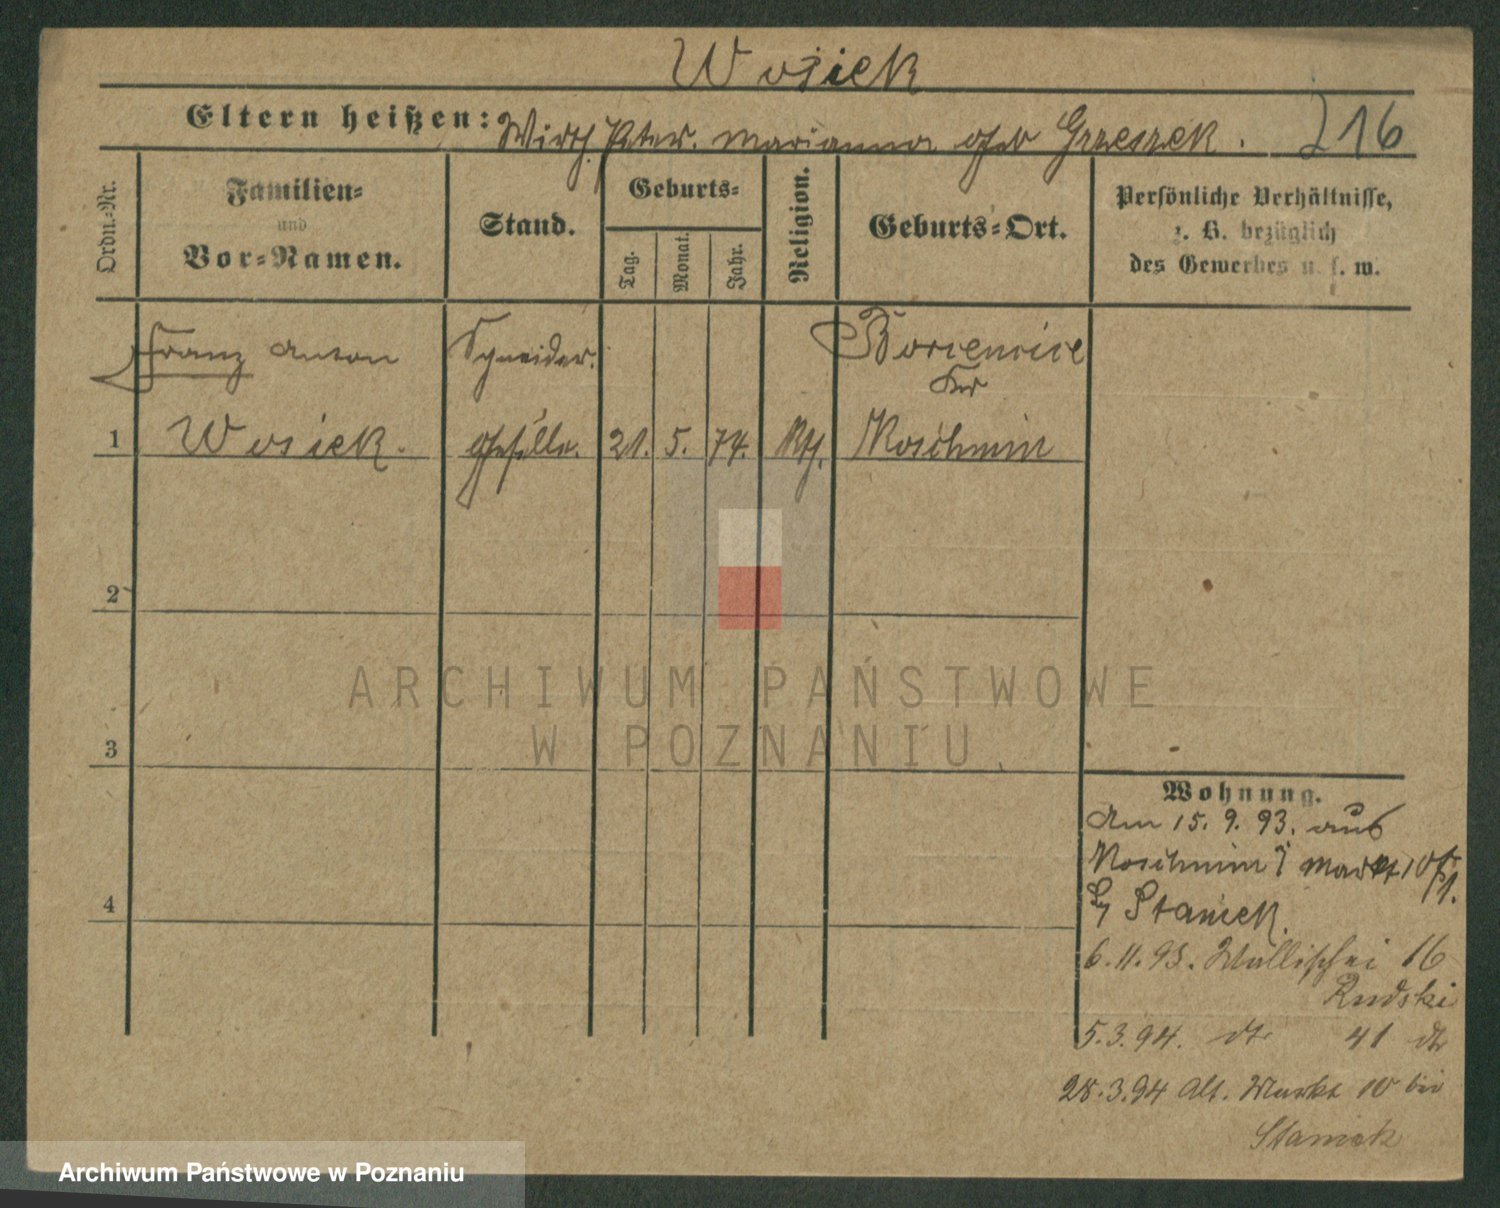 Wosiek
Eltern heißen: Wirth Peter. Marianna geb Grzeszek. 216
Ordn.-Nr.
Familien-
und
Vor-Namen.
Stand.
Geburts-
Tag.
Monat.
Jahr.
Religion.
Geburts-Ort.
Persönliche Verhältnisse,
z. B. bezüglich
des Gewerbes u. s. w.
Franz Anton Schneider.
Borzencice
Krs
1 Wosiek. geselle. 21. 5. 74. Kth. Koschmin
2
3
4
ARCHIWUM PAŃSTWOWE
W POZNANIU
Wohnung.
Am 15. 9. 93. aus
Koschmin Markt 10
Staniek.
6. 11. 93. Wallischei 16
Rudski
5. 3. 94. dto 41 dto
28. 3. 94 Alt. Markt 10 bei
Staniek
Archiwum Państwowe w Poznaniu